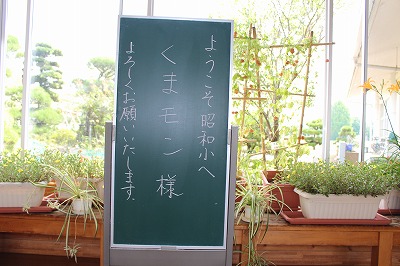 ようこそ昭和小へ
くまモン様
よろしくお願いいたします。